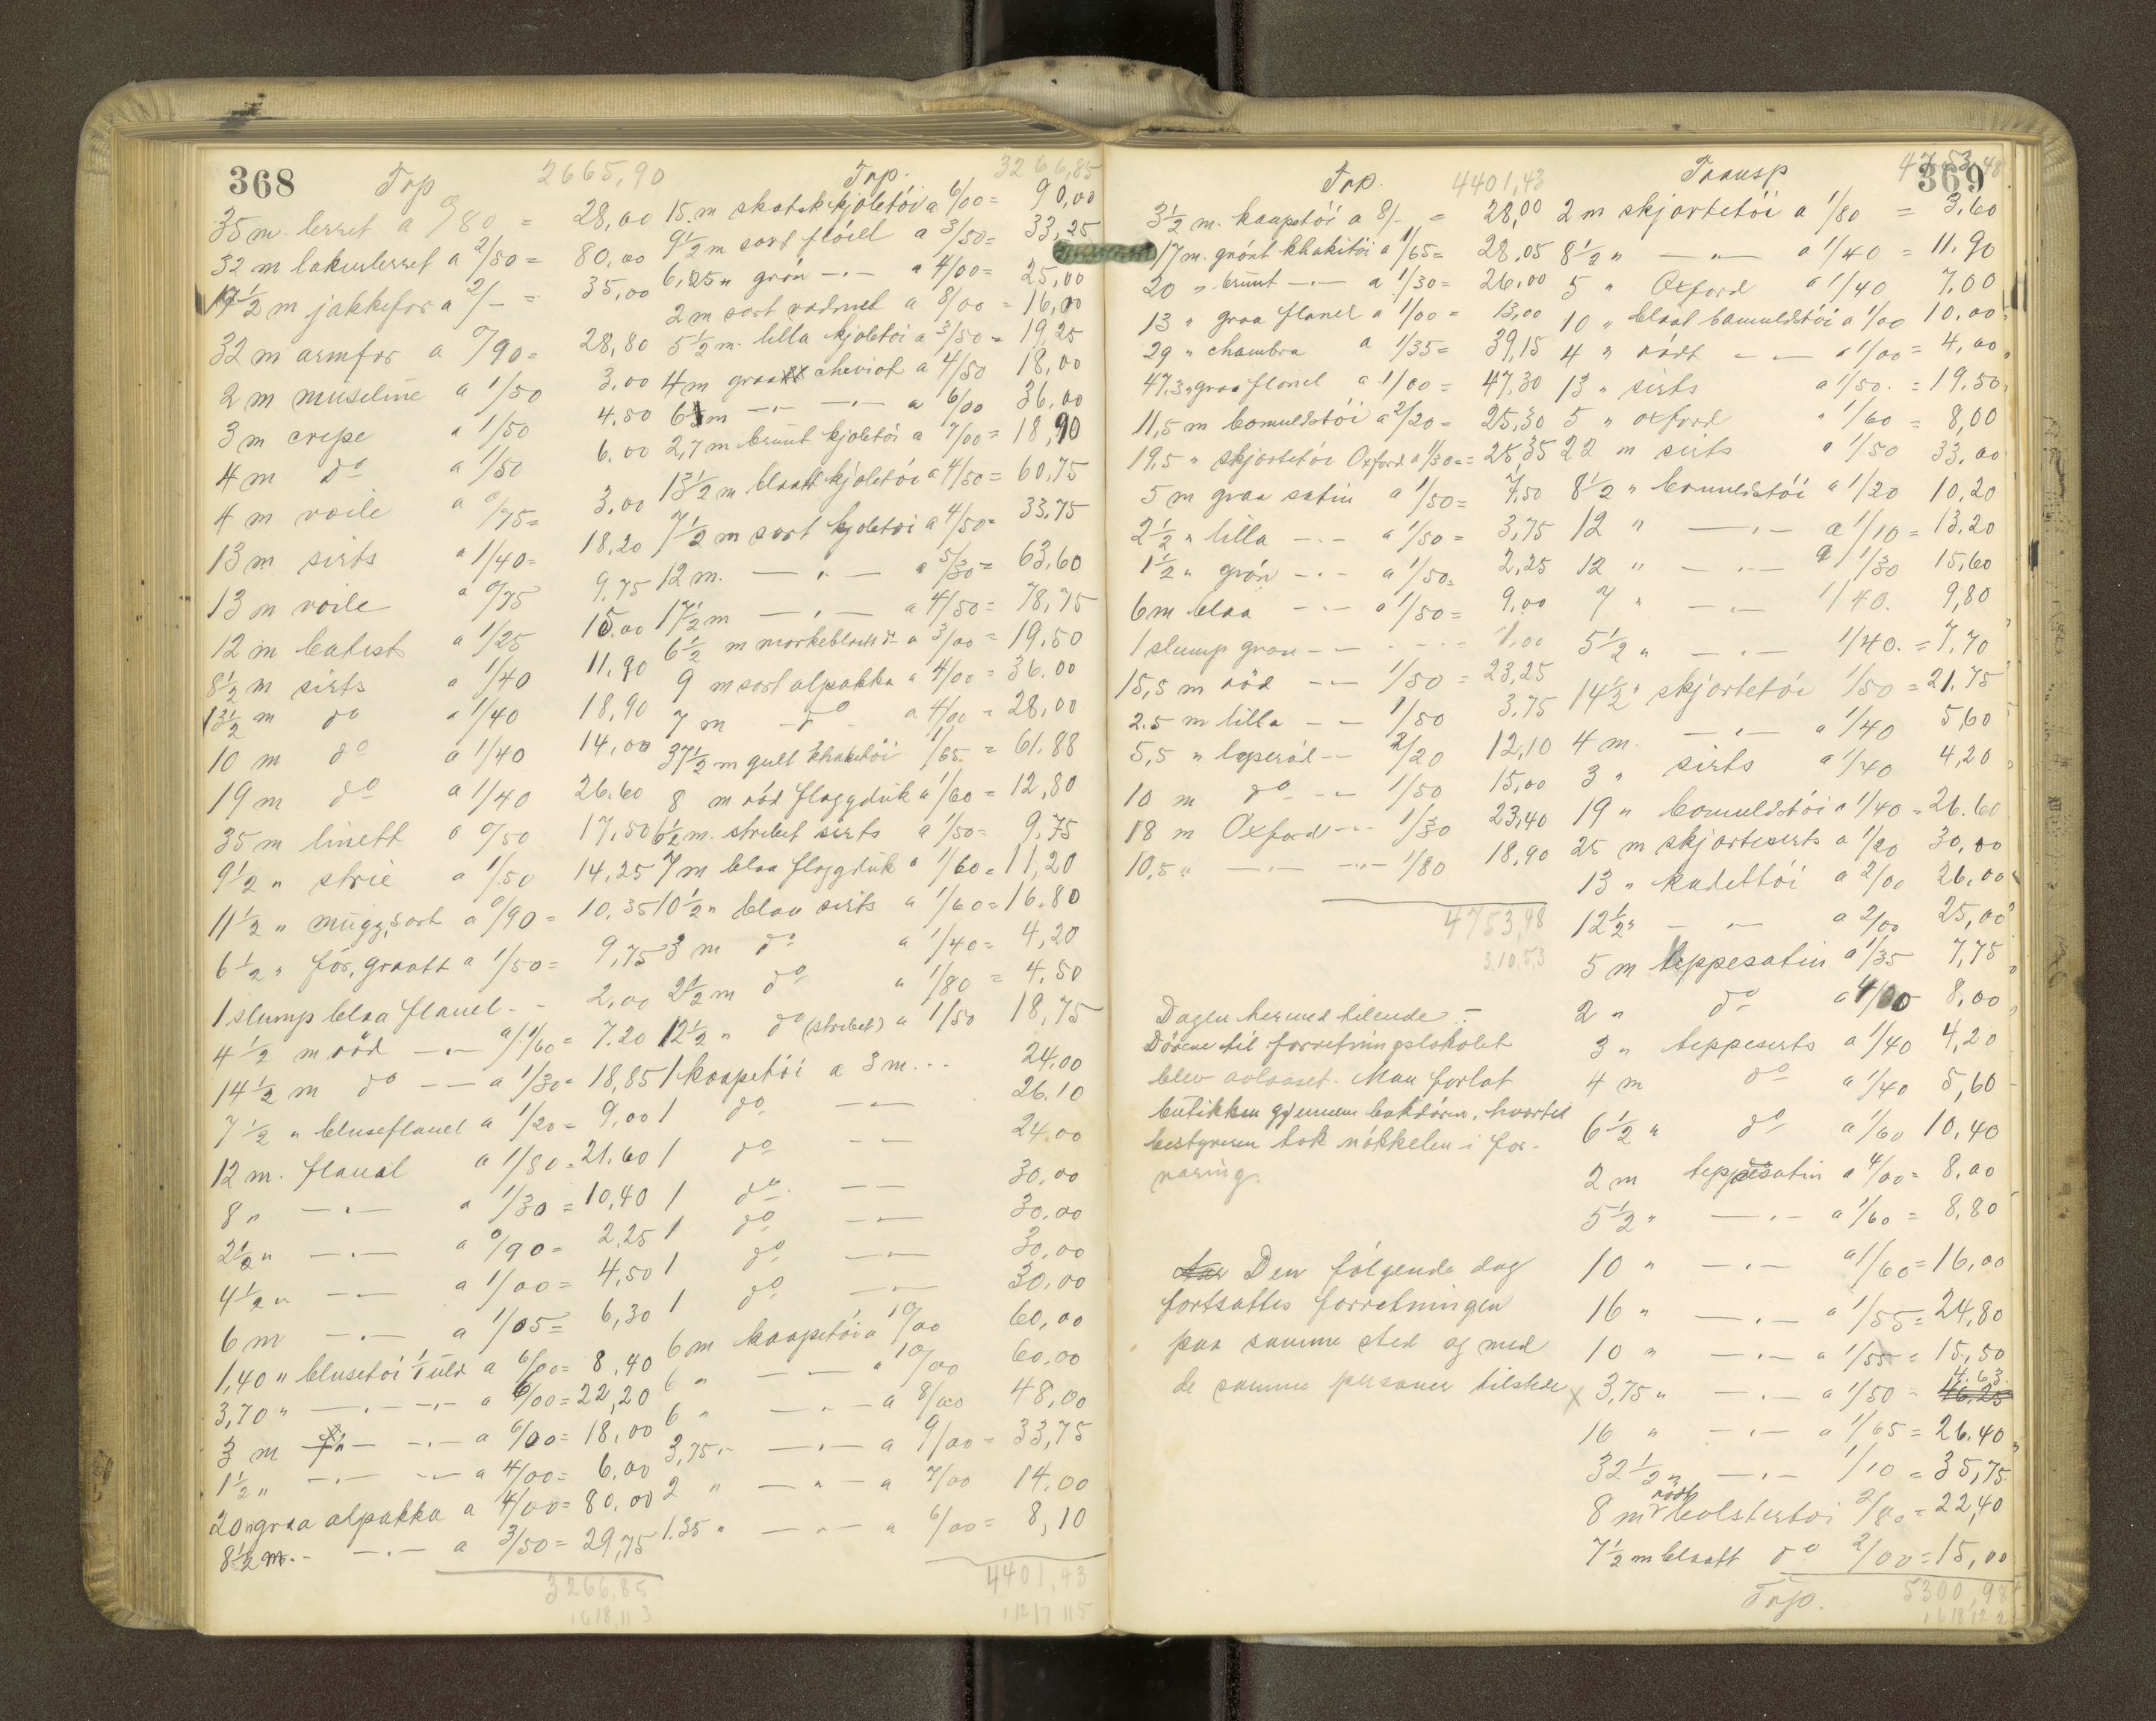 368
Trp 2665,90
35 m. lerret a 0/80 = 28,00
32 m lakenlerret a 2/50 = 80,00
17 1/2 m jakkefor a 2/- = 35,00
32 m armfor a 0/90 = 28,80
2 m museline a 1/50 3.00
3 m crepe a 1/50 4.50
4 m do a 1/50 6.00
4 m voile a 0/75 = 3,00
13 m sirts a 1/40 = 18,20
13 m voile a 0/75 9.75
12 m batist a 1/25 15.00
8 1/2 m sirts a 1/40 11.90
13 1/2 m do a 1/40 18,90
10 m do a 1/40 14,00
19 m do a 1/40 26.60
35 m linett a 0/50 17,50
9 1/2 " strie a 1/50 14,25
11 1/2 " mugg, sort a 0/90 = 10,35
6 1/2 " for, graatt a 1/50 = 9,75
1 slump blaa flanel - 2,00
4 1/2 m röd -"- a 1/60 = 7.20
14 1/2 m do -- a 1/30 = 18,85
7 1/2 " bluseflanel a 1/20 = 9,00
12 m. flanel a 1/80 = 21.60
8 " -"- a 1/30 = 10,40
2 1/2 " -"- a 0/90 = 2,25
4 1/2 " -- a 1/00 = 4,50
6 m -"- a 1/05 = 6,30
1,40 " blusetöi 1/1 uld a 6/00 = 8,40
3,70 " -"- -"- a 6/00 = 22,20
3 m -"- -"- a 6/00 = 18,00
1 1/2 " -"- -"- a 4/00 = 6,00
20 " graa alpakka a 4/00 = 80,00
8 1/2 m. -"- a 3/50 = 29,75
3266,85
Trp. 3266,85
15 m skotsk kjoletöi a 6/00 = 90,00
9 1/2 m sort flöiel a 3/50 = 33,25
6,25 " grön -"- a 4/00 = 25,00
2 m sort vadmel a 8/00 = 16,00
5 1/2 m. lilla kjoletöi a 3/50 = 19,25
4 m graa cheviot a 4/50 18,00
6 m -"- -"- a 6/00 36,00
2,7 m brunt kjoletöi a 7/00 = 18,90
13 1/2 m blaatt kjoletöi a 4/50 = 60,75
7 1/2 m sort kjoletöi a 4/50 = 33,75
12 m. -"- a 5/30 = 63,60
17 1/2 m -"- a 4/50 = 78,75
6 1/2 m mörkeblaatt do a 3/00 = 19,50
9 m sort alpakka a 4/00 = 36.00
7 m -do- a 4/00 = 28,00
37 1/2 m gult khakitöi 1/65 = 61.88
8 m röd flaggduk a 1/60 = 12,80
6 1/2 m. stribet sirts a 1/50 = 9.75
7 m blaa flaggduk a 1/60 = 11,20
10 1/2 " blaa sirts a 1/60 = 16.80
3 m do a 1/40 = 4,20
2 1/2 m do a 1/80 = 4.50
12 1/2 " do (stribet) a 1/50 18,75
1 kaapetöi a 3 m... 24.00
1 do -- 26.10
1 do -- 24.00
1 do -- 30.00
1 do -- 30.00
1 do -- 30.00
1 do -- 30.00
6 m kaapetöi a 10/00 60,00
6 " -- a 10/00 60.00
6 " -"- a 8/00 48,00
3,75 " -"- a 9/00 = 33,75
2 " -"- a 7/00 14.00
1.35 " -"- a 6/00 = 8,10
4401,43
369
Trp. 4401,43
3 1/2 m. kaapetöi a 8/- = 28,00
17 m. grönt khakitöi a 1/65 = 28,05
20 " brunt -"- a 1/30 = 26,00
13 " graa flanel a 1/00 = 13,00
29 " chambra a 1/35 = 39,15
47.3 " graa flanel a 1/00 = 47,30
11,5 m bomuldstöi a 2/20 = 25,30
19,5 " skjortetöi Oxford a 1/30 = 25,35
5 m graa satin a 1/50 = 7,50
2 1/2 " lilla -"- a 1/50 = 3,75
1 1/2 " grön -"- a 1/50 = 2,25
6 m blaa -"- a 1/50 = 9,00
1 slump graa -- 1,00
15,5 m röd -- 1/50 = 23,25
2.5 m lilla -- 1/50 3.75
5,5 " -- 2/20 12,10
10 m do -- 1/50 15,00
18 m Oxford -- 1/30 23,40
10,5 " -"- -"- 1/80 18,90
4753,48
Dagen hermed tilende. -
Dörene til forretningslokalet
blev avlaaset. Man forlot
butikken gjennem bakdören, hvortil
bestyreren tok nökkelen i for-
varing.
Den fölgende dag
fortsattes forretningen
paa samme sted og med
de samme personer tilstede
Transp 4753,48
2 m skjortetöi a 1/80 = 3.60
8 1/2 " -"- a 1/40 = 11.90
5 " Oxford a 1/40 7,00
10 " blaat bomuldstöi a 1/00 10,00
4 " rödt -- a 1/00 = 4,00
13 " sirts a 1/50. = 19,50
5 " oxford " 1/60 = 8,00
22 m sirts a 1/50 33,00
8 1/2 " bomuldstöi a 1/20 10,20
12 " -"- a 1/10 = 13,20
12 " -"- a 1/30 15,60
7 " -"- 1/40. 9,80
5 1/2 " -"- 1/40. = 7,70
14 1/2 " skjortetöi 1/50 = 21.75
4 m. -"- a 1/40 5,60
3 " sirts a 1/40 4,20
19 " bomuldstöi a 1/40 = 26.60
25 m skjortesirts a 1/20 30,00
13 " kadettöi a 2/00 26,00
12 1/2 " -"- a 2/00 25,00
5 m teppesatin a 1/35 7,75
2 " do a 4/00 8,00
3 " teppesirts a 1/40 4,20
4 m do a 1/40 5,60
6 1/2 " do a 1/60 10,40
2 m teppesatin a 4/00 = 8,00
5 1/2 " -"- a 1/60 = 8,80
10 " -"- a 1/60 = 16,00
16 " -"- a 1/55 = 24,80
10 " -"- a 1/55 = 15,50
x 3,75 " -"- a 1/50 = 46.25 4.63
16 " -"- a 1/65 = 26.40
32 1/2 " -"- 1/10 = 35,75
8 m rödt bolstertöi 2/80 = 22,40
7 1/2 m blaatt do 2/00 = 15,00
Trp. 5300,98